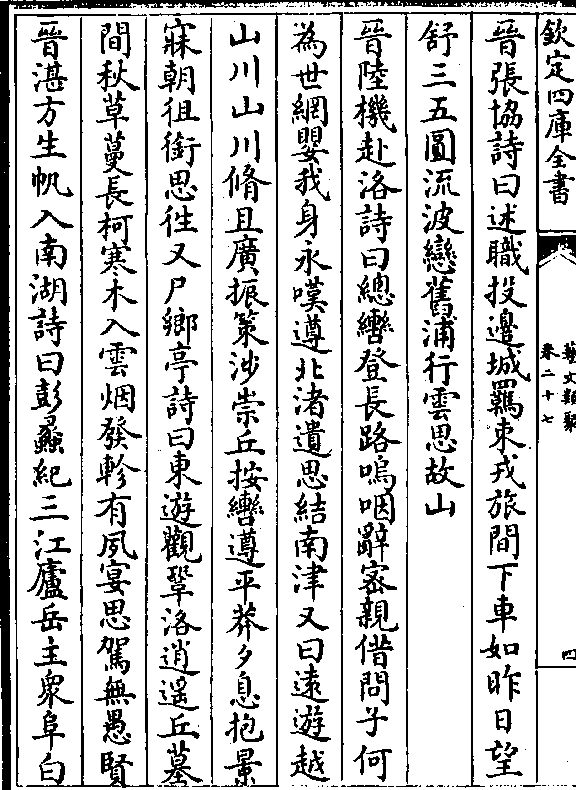 欽定四庫全書
藝文類聚
卷二十七
四
晉張協詩曰述職投邊城羈束戎旅間下車如昨日望
舒三五圓流波戀舊浦行雲思故山
晉陸機赴洛詩曰總轡登長路嗚咽辭密親借問子何
為世網嬰我身永嘆遵北渚遺思結南津又曰遠遊越
山川山川脩且廣振策涉崇丘按轡遵平莽夕息抱景
寐朝徂銜思往又尸鄉亭詩曰東遊觀鞏洛逍遥丘墓
間秋草蔓長柯寒木入雲烟發軫有夙宴思駕無愚賢
晉湛方生帆入南湖詩曰彭蠡紀三江廬岳主衆阜白